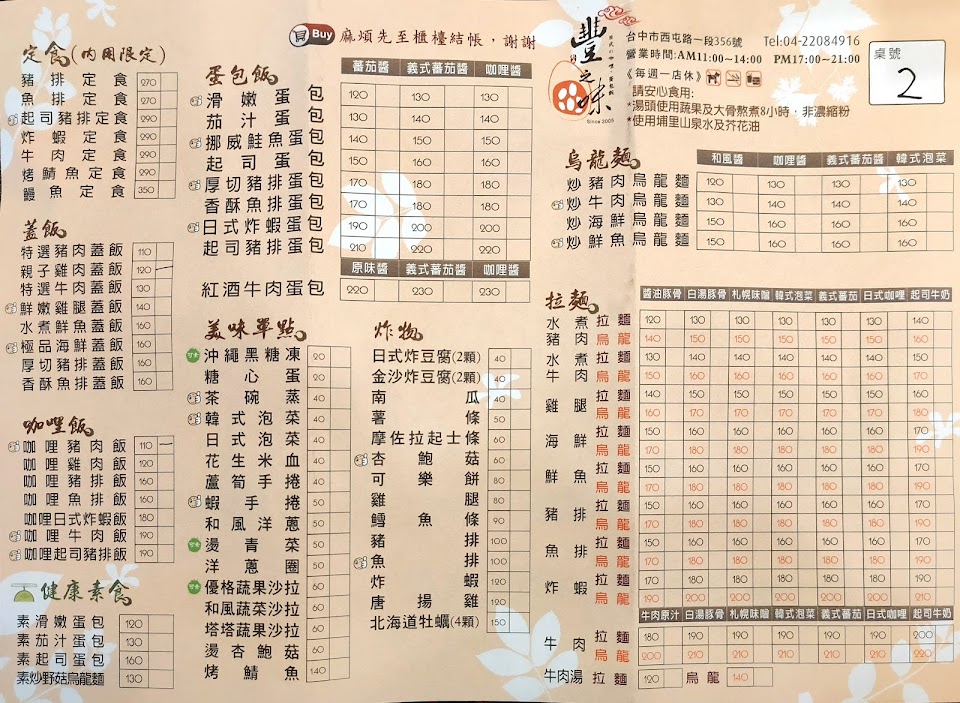 Buy 麻煩先至櫃檯結帳，謝謝
豐之味
Since 2005
台中市西屯路一段356號 Tel:04-22084916
營業時間:AM11:00~14:00 PM17:00~21:00
《每週一店休》
請安心食用:
*湯頭使用蔬果及大骨熬煮8小時，非濃縮粉
*使用埔里山泉水及芥花油
桌號
2
定食(內用限定)
豬排定食 270
魚排定食 270
起司豬排定食 290
炸蝦定食 290
牛肉定食 290
烤鯖魚定食 290
鰻魚定食 350
蓋飯
特選豬肉蓋飯 110
親子雞肉蓋飯 120
特選牛肉蓋飯 130
鮮嫩雞腿蓋飯 140
水煮鮮魚蓋飯 160
極品海鮮蓋飯 160
厚切豬排蓋飯 160
香酥魚排蓋飯 160
咖哩飯
咖哩豬肉飯 110
咖哩雞肉飯 120
咖哩豬排飯 160
咖哩魚排飯 160
咖哩日式炸蝦飯 180
咖哩牛肉飯 190
咖哩起司豬排飯 190
健康素食
素滑嫩蛋包 120
素茄汁蛋包 130
素起司蛋包 160
素炒野菇烏龍麵 130
蛋包飯
蕃茄醬 義式蕃茄醬 咖哩醬
滑嫩蛋包 120 130 130
茄汁蛋包 130 140 140
挪威鮭魚蛋包 140 150 150
起司蛋包 150 160 160
厚切豬排蛋包 170 180 180
香酥魚排蛋包 170 180 180
日式炸蝦蛋包 190 200 200
起司豬排蛋包 210 220 220
原味醬 義式蕃茄醬 咖哩醬
紅酒牛肉蛋包 220 230 230
美味單點
沖繩黑糖凍 20
糖心蛋 20
茶碗蒸 40
韓式泡菜 40
日式泡菜 40
花生米血 40
蘆筍手捲 40
蝦手捲 50
和風洋蔥 50
燙青菜 50
洋蔥圈 50
優格蔬果沙拉 60
和風蔬菜沙拉 60
塔塔蔬果沙拉 60
燙杏鮑菇 60
烤鯖魚 140
炸物
日式炸豆腐(2顆) 40
金沙炸豆腐(2顆) 40
南瓜 40
薯條 50
摩佐拉起士條 60
杏鮑菇 60
可樂餅 80
雞腿 80
鱈魚條 90
豬排 100
魚排 100
炸蝦 120
唐揚雞 120
北海道牡蠣(4顆) 150
烏龍麵
和風醬 咖哩醬 義式蕃茄醬 韓式泡菜
炒豬肉烏龍麵 120 130 130 130
炒牛肉烏龍麵 130 140 140 140
炒海鮮烏龍麵 150 160 160 160
炒鮮魚烏龍麵 150 160 160 160
拉麵
醬油豚骨 白湯豚骨 札幌味噌 韓式泡菜 義式蕃茄 日式咖哩 起司牛奶
水煮 拉麵 120 130 130 130 130 130 140
豬肉 烏龍 140 150 150 150 150 150 160
水煮 拉麵 130 140 140 140 140 140 150
牛肉 烏龍 150 160 160 160 160 160 170
雞腿 拉麵 140 150 150 150 150 150 160
烏龍 160 170 170 170 170 170 180
海鮮 拉麵 150 160 160 160 160 160 170
烏龍 170 180 180 180 180 180 190
鮮魚 拉麵 150 160 160 160 160 160 170
烏龍 170 180 180 180 180 180 190
豬排 拉麵 150 160 160 160 160 160 170
烏龍 170 180 180 180 180 180 190
魚排 拉麵 150 160 160 160 160 160 170
烏龍 170 180 180 180 180 180 190
炸蝦 拉麵 170 180 180 180 180 180 190
烏龍 190 200 200 200 200 200 210
牛肉原汁 白湯豚骨 札幌味噌 韓式泡菜 義式蕃茄 日式咖哩 起司牛奶
牛肉 拉麵 180 190 190 190 190 190 200
烏龍 200 210 210 210 210 210 220
牛肉湯 拉麵 120 烏龍 140